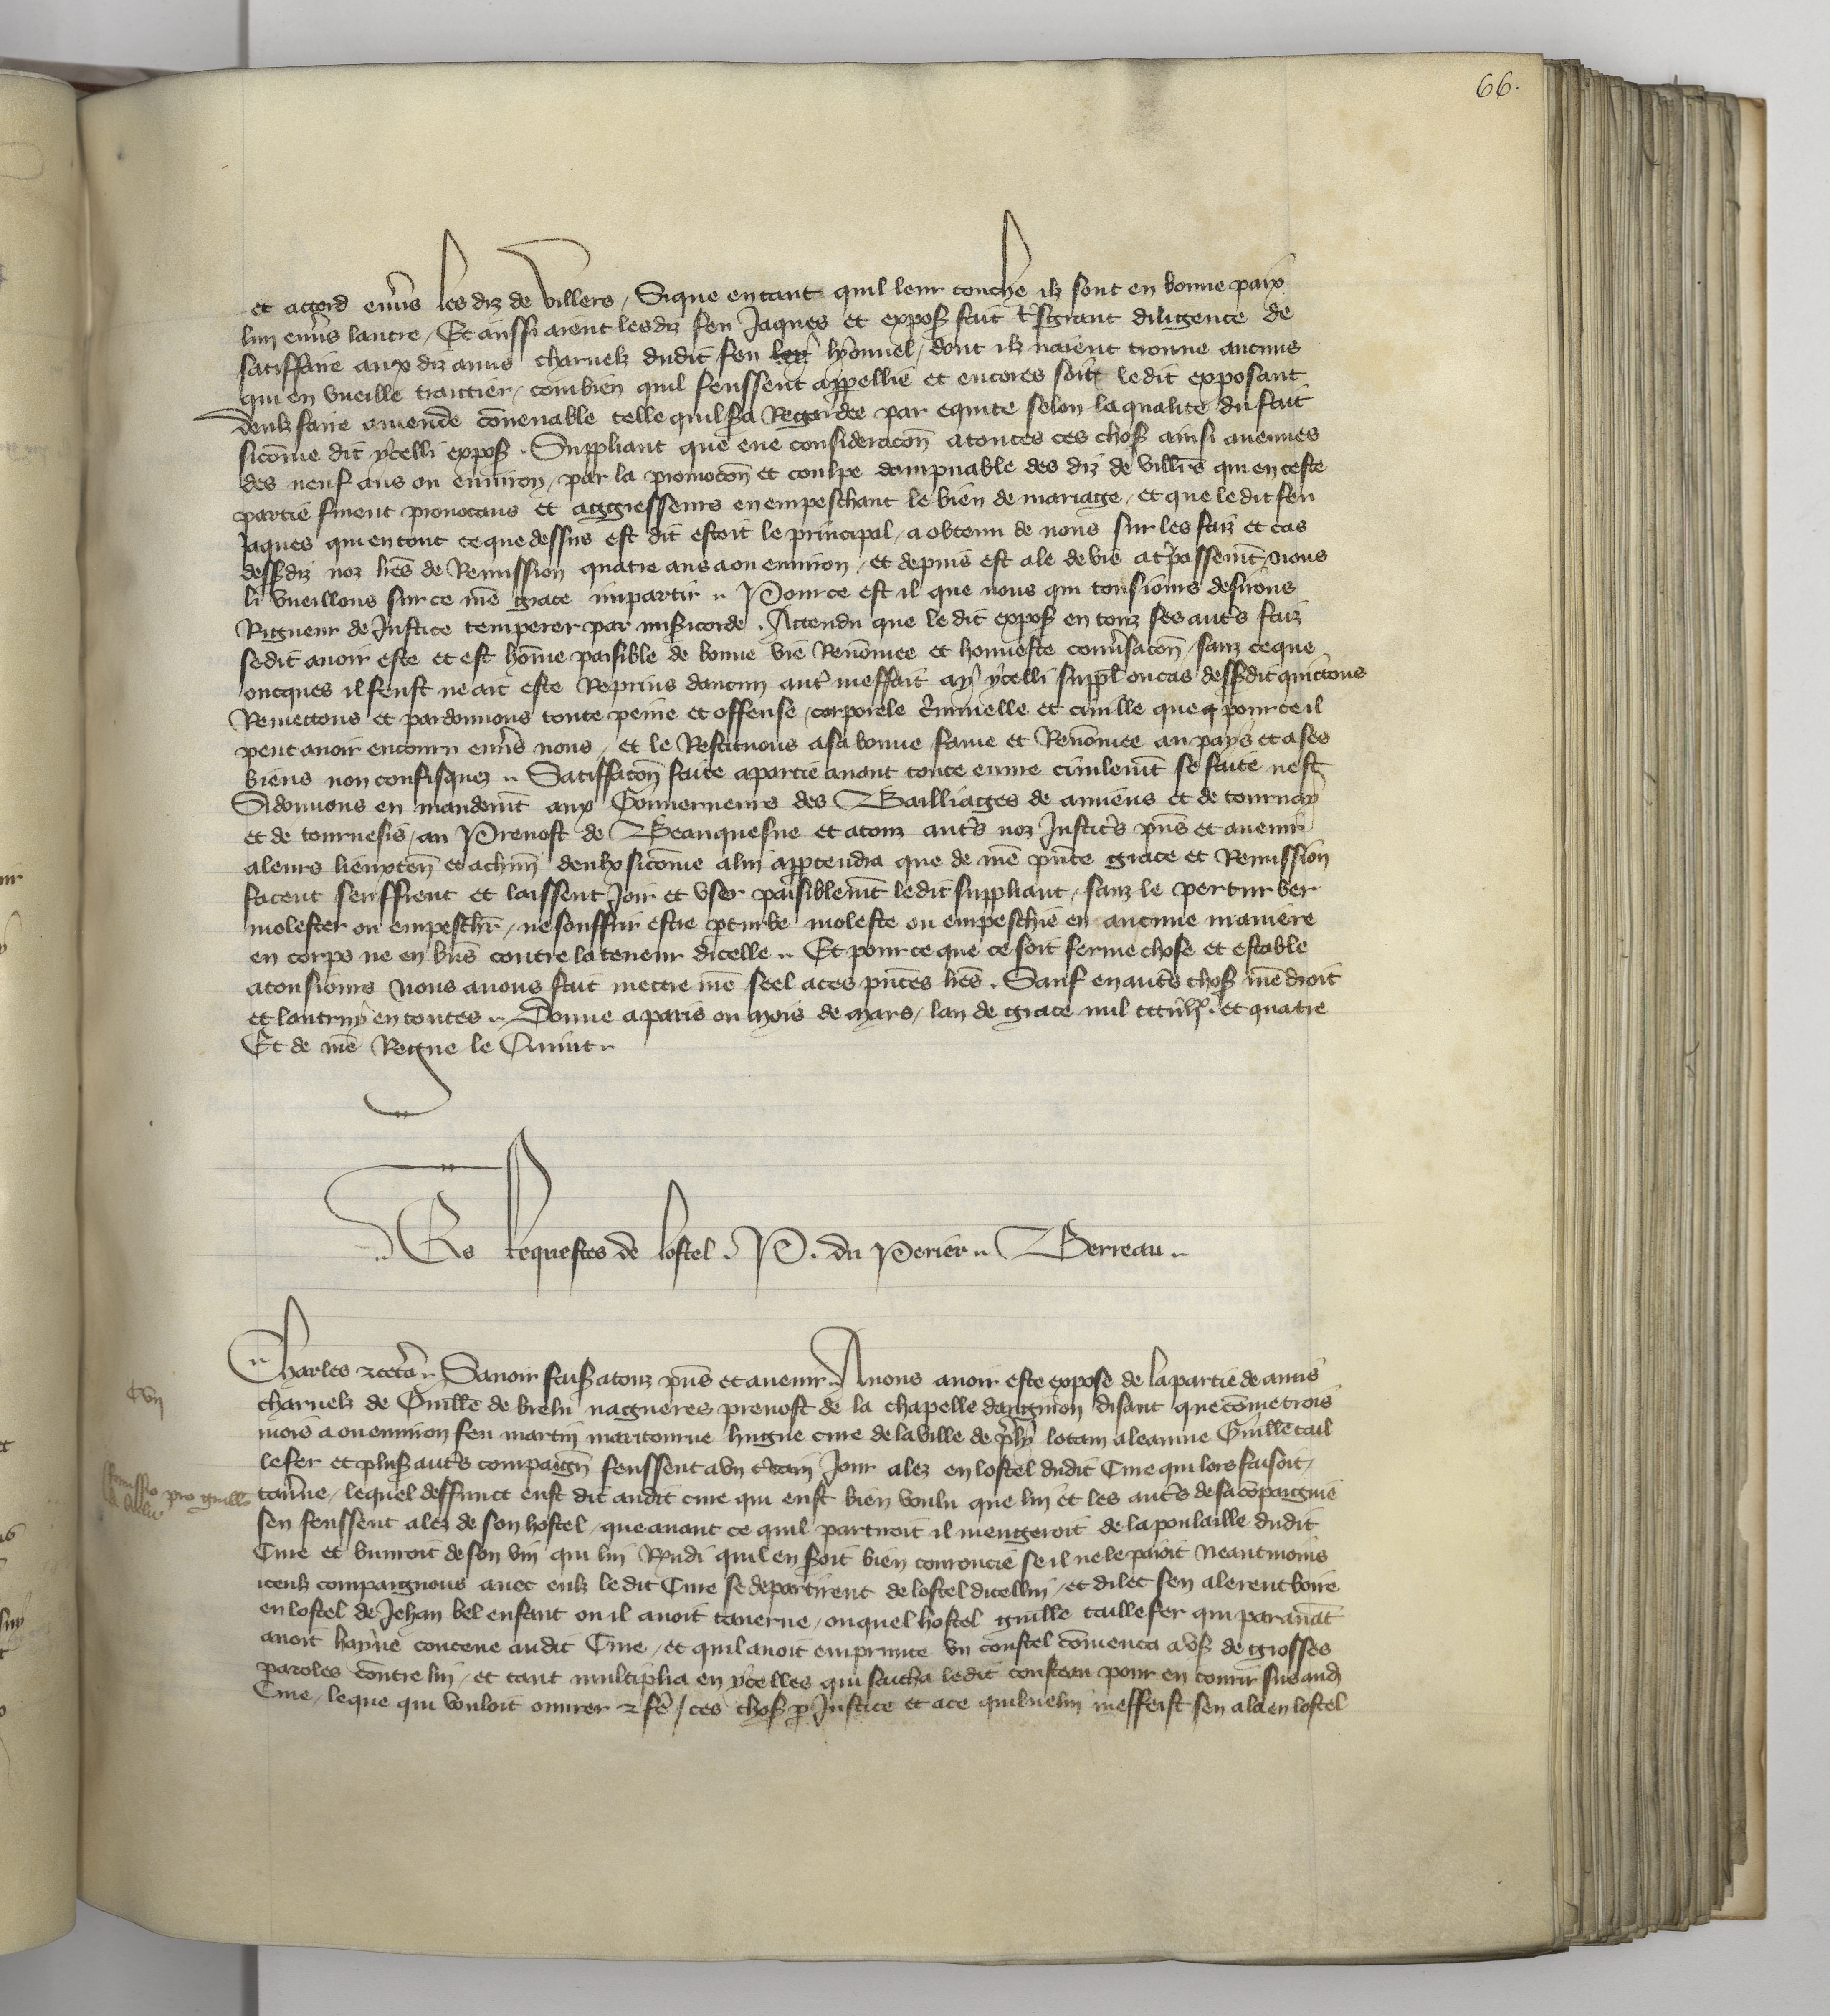 66.
et accord env̄s les diz de villers / Si que en tant quil leur touche ilz sont en bonne paix
lun env̄s lautre / Et aussi aient les diz feu Jaques et expos̄ fait t̄sgrant diligence de
satiffaire aux diz amis charnelz dudit feu lyonnel / dont ilz naient trouue aucuns
qui en vueille traictier / combien quil feussent appellie et encores soit ledit expposant
deulz faire amende cōuenable telle quil s̄a Regardee par equite selon la qualite du fait
sicōme dit ycelli expos̄ . Suppliant que eue consideracōn a toutes ces chos̄ ainsi auenues
des neuf ans ou enuiron / par la promocōn et coulpe dampnable des diz de vill̄rs qui en ceste
partie furent prouocans et aggresseurs en empeschant le bien de mariage / et que ledit feu
Jaques qui en tout ce que dessus est dit estoit le principal / a obtenu de nous sur les faiz et cas
dess̄diz noz lr̄es de Remission quatre ans a ou enuiron / et depuis est ale de vie a t̄passemēt / Nous
li vueillons sur ce nr̄e grace impartir .. Pour ce est il que nous qui tousiours desirons
Rigueur de Justice temperer par mis̄icorde . Attendu que le dit expos̄ en touz ses aut̄s faiz
se dit auoir este et est hōme paisible de bonne vie Renōmee et honneste conv̄sacōn / sanz ce que
oncques il feust ne ait este Reprins daucun aut̄ meffait a ycelli suppl̄ ou cas dess̄dit quictons
Remettons et pardonnons toute peine et offense / corporele c̄minelle et ciuille que pour ce il
peut auoir encouru env̄s nous / et le Restituons a sa bonne fame et Renōmee au pays et a ses
biens non confisquez .. Satiffacōn faite a partie auant toute euure ciuilemēt se faite nest
Si donnons en mandemēt aux Gouuerneurs des Bailliages de amiens et de tournay
et de tournesis / au Preuost de Beauquesne et a touz aut̄s noz Justic̄s pn̄s et auenir
a leurs lieuxten̄ et a chūn deulx sicōme a lui appartendra que de nr̄e pn̄te grace et Remission
facent seuffrent et laissent Joir et vser paisiblemēt ledit suppliant / sanz le perturber
molester ou empesch̄r / ne souffrir estre p̄turbe moleste ou empeschie en aucune maniere
en corps ne en biēs contre la teneur dicelle .. Et pour ce que ce soit ferme chose et estable
a tousiours Nous auons fait mettre nr̄e seel a ces pn̄tes lr̄es . Sauf en aut̄s chos̄ nr̄e droit
et lautruy en toutes .. Donne a paris ou mois de mars / lan de grace mil ccciiijxx. et quatre
Et de nr̄e Regne le Quint ..
.. Es Requestes de lostel . P. du Perier .. Berreau ..
Charles etcet̄a .. Sauoir fais̄ a touz pn̄s et auenir . Nous auoir este expose de la partie de amis
charnelz de Guill̄e de brelu nagueres preuost de la chapelle dangium disant que cōme trois
mois a ou enuiron feu martin maritourne hugue cure de la ville de lotam aleaume Guill̄e tail
lefer et plus̄ aut̄s compaign̄ feussent a vn c̄tain Jour alez en lostel dudit Cure qui lors faisoit
tau̅ne / lequel deffunct eust dit audit cure qui eust bien voulu que lui et les aut̄s de sa cōpaignie
sen feussent alez de son hostel / que auant ce quil partiroit il mengeroit de la poulaille dudit
Cure et buuroit de son vin qui lui R̄ndi quil en s̄oit bien courroucie se il ne le paioit Neantmoins
iceulz compaignons auec eulz le dit Cure se departirent de lostel dicellui / et dilec sen alerent boire
en lostel de Jehan bel enfant ou il auoit tauerne / ouquel hostel guill̄e taillefer qui parauāt
auoit hayne contene audit Cure / et quil auoit emprunte vn coustel cōmenca a vs̄ de grosses
paroles contre lui / et tant multiplia en ycelles qui sacha ledit cousteau pour en courir sus aud̄
Cure / leque qui vouloit ouurer  ces chos̄ p̄ Justice et a ce quil ne lui meffeist sen ala en lostel
Cvij
Remissio pro guill̄o
de brelu.